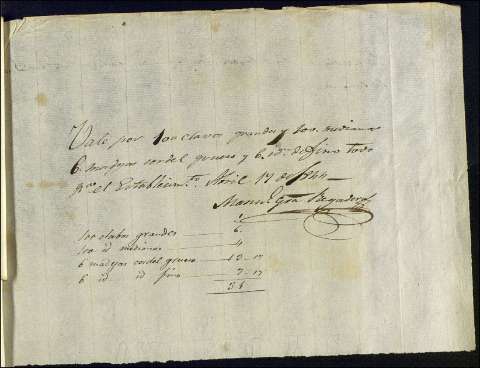 Vale por 100 clavos grandes y 100 medianos
6. madejas cordel grueso y 6. id. de fino todo
pa. el Establecim.to Abril 17 de 1844
Manuel Gra
100 clabos grandes 6.
100 id medianos 4
6 madejas cordel grueso 13-17
6 id id fino 7-17
31